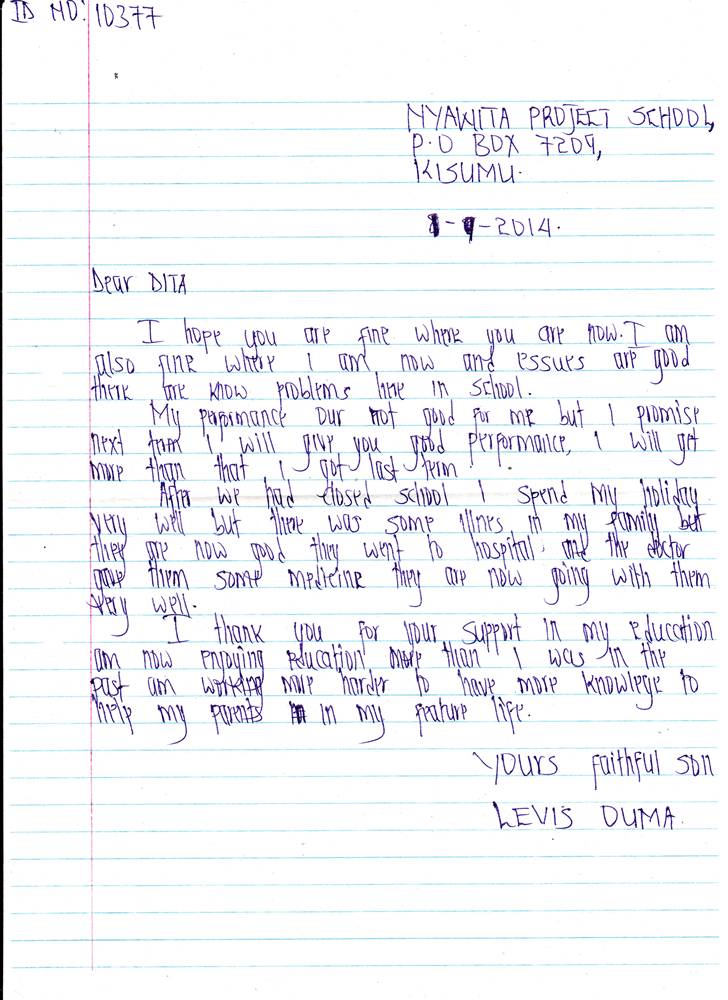 ID NO: 10377
NYAWITA PROJECT SCHOOL,
P.O BOX 7209,
KISUMU.
-2014.
Dear DITA
I hope you are fine where you are now. I am
also fine where I am now and essues are good
there are know problems hire in school.
My performance our not good for me but I promise
next term I will give you good performance, I will get
more than that I got last term.
After we had closed school I spend my holiday
very well but there was some illnes in my family but
they are now good they went to hospital and the doctor
gave them some medicine they are now going with them
very well.
I thank you for your support in my education
am now enjoying education more than I was in the
past am working more harder to have more knowlege to
help my parents in my feature life.
Yours faithful son
LEVIS OUMA